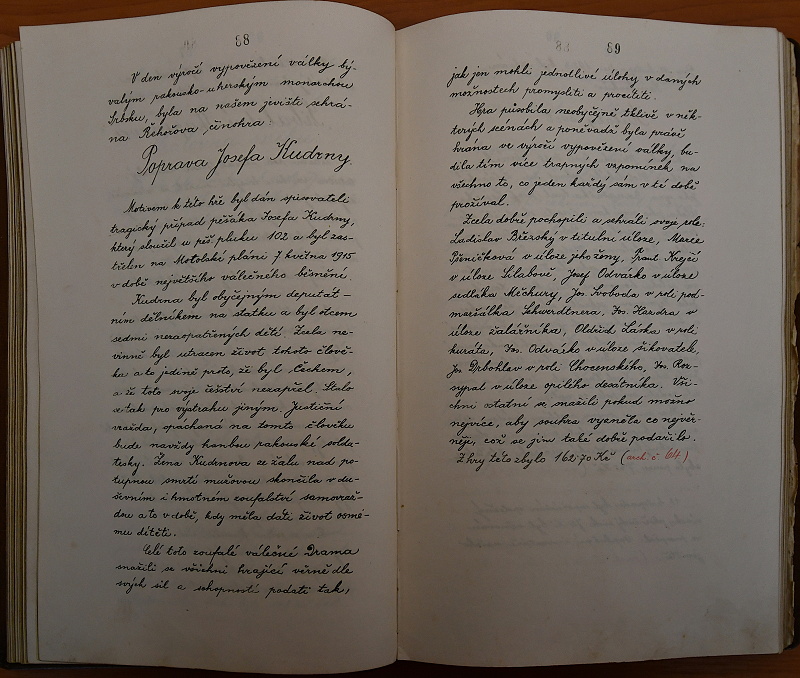 88
V den výročí vypovězení války bý-
valým rakousko-uherským monarchou
Srbsku, byla na našem jevišti sehrá-
na Řehořova činohra:
Poprava Josefa Kudrny.
Motivem k této hře byl dán spisovateli
tragický případ pěšáka Josefa Kudrny,
který sloužil u pěš. pluku 102 a byl zas-
třelen na Motolské pláni 7 května 1915
v době největšího válečného běsnění.
Kudrna byl obyčejným deputát-
ním dělníkem na statku a byl otcem
sedmi nezaopatřených dětí. Zcela ne-
vinně byl utracen život tohoto člově-
ka a to jedině proto, že byl Čechem,
a že toto svoje češství nezapřel. Stalo
se tak pro výstrahu jiným. Justiční
vražda, spáchaná na tomto člověku
bude navždy hanbou rakouské solda-
tesky. Žena Kudrnova ze žalu nad po-
tupnou smrtí mužovou skončila v du-
ševním i hmotném zoufalství samovraž-
dou a to v době, kdy měla dáti život osmé-
mu dítěti.
Celé toto zoufalé válečné Drama
snažili se všichni hrající věrně dle
svých sil a schopností podati tak,
89
jak jen mohli jednotlivé úlohy v daných
možnostech promysliti a procítiti.
Hra působila neobyčejně tklivě v něk-
terých scénách a poněvadž byla právě
hrána ve výročí vypovězení války, bu-
dila tím více trapných vzpomínek na
všechno to, co jeden každý sám v té době
prožíval.
Zcela dobře pochopili a sehráli svoje role:
Ladislav Březský v titulní úloze, Marie
Pěničková v úloze jeho ženy, Frant. Krejčí
v úloze Silabově, Josef Odvárko v úloze
sedláka Měchury, Jos. Svoboda v roli pod-
maršálka Schwerdtnera, Jos. Kazdra v
úloze žalářníka, Oldřich Láska v roli
kuráta, Jos. Odvárko v úloze šikovatele,
Jos. Drbohlav v roli Chocenského, Jos. Roz-
sypal v úloze opilého desátníka. Vši-
chni ostatní se snažili pokud možno
nejvíce, aby souhra vyzněla co nejvěr-
něji, což se jim také dobře podařilo.
Z hry této zbylo 162.70 Kč (arch. č. 64)